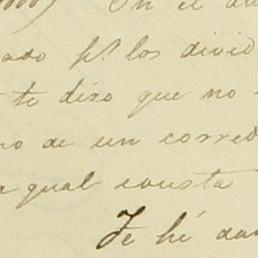 ) En el
ado pr. los divid
te diso que no
no de un corred
a qual consta
Te hé da